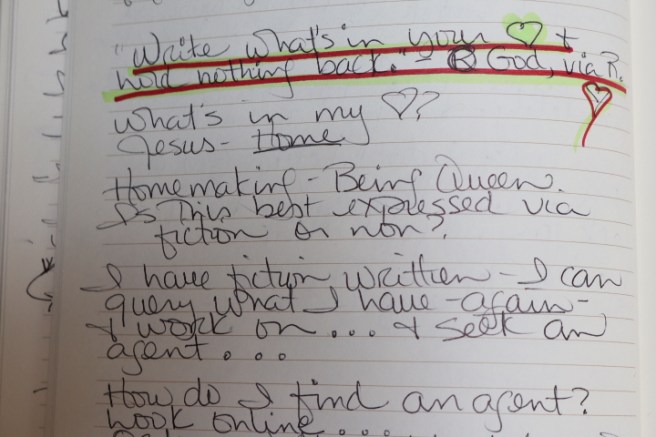 "Write what's in your ♡ +
hold nothing back." - God, via R.
What's in my ♡?
Jesus - Home
Homemaking - Being Queen.
Is This best expressed via
fiction or non?
I have fiction written - I can
query what I have - again -
& work on . . . & seek an
agent . . . .
How do I find an agent?
Look online . . . .